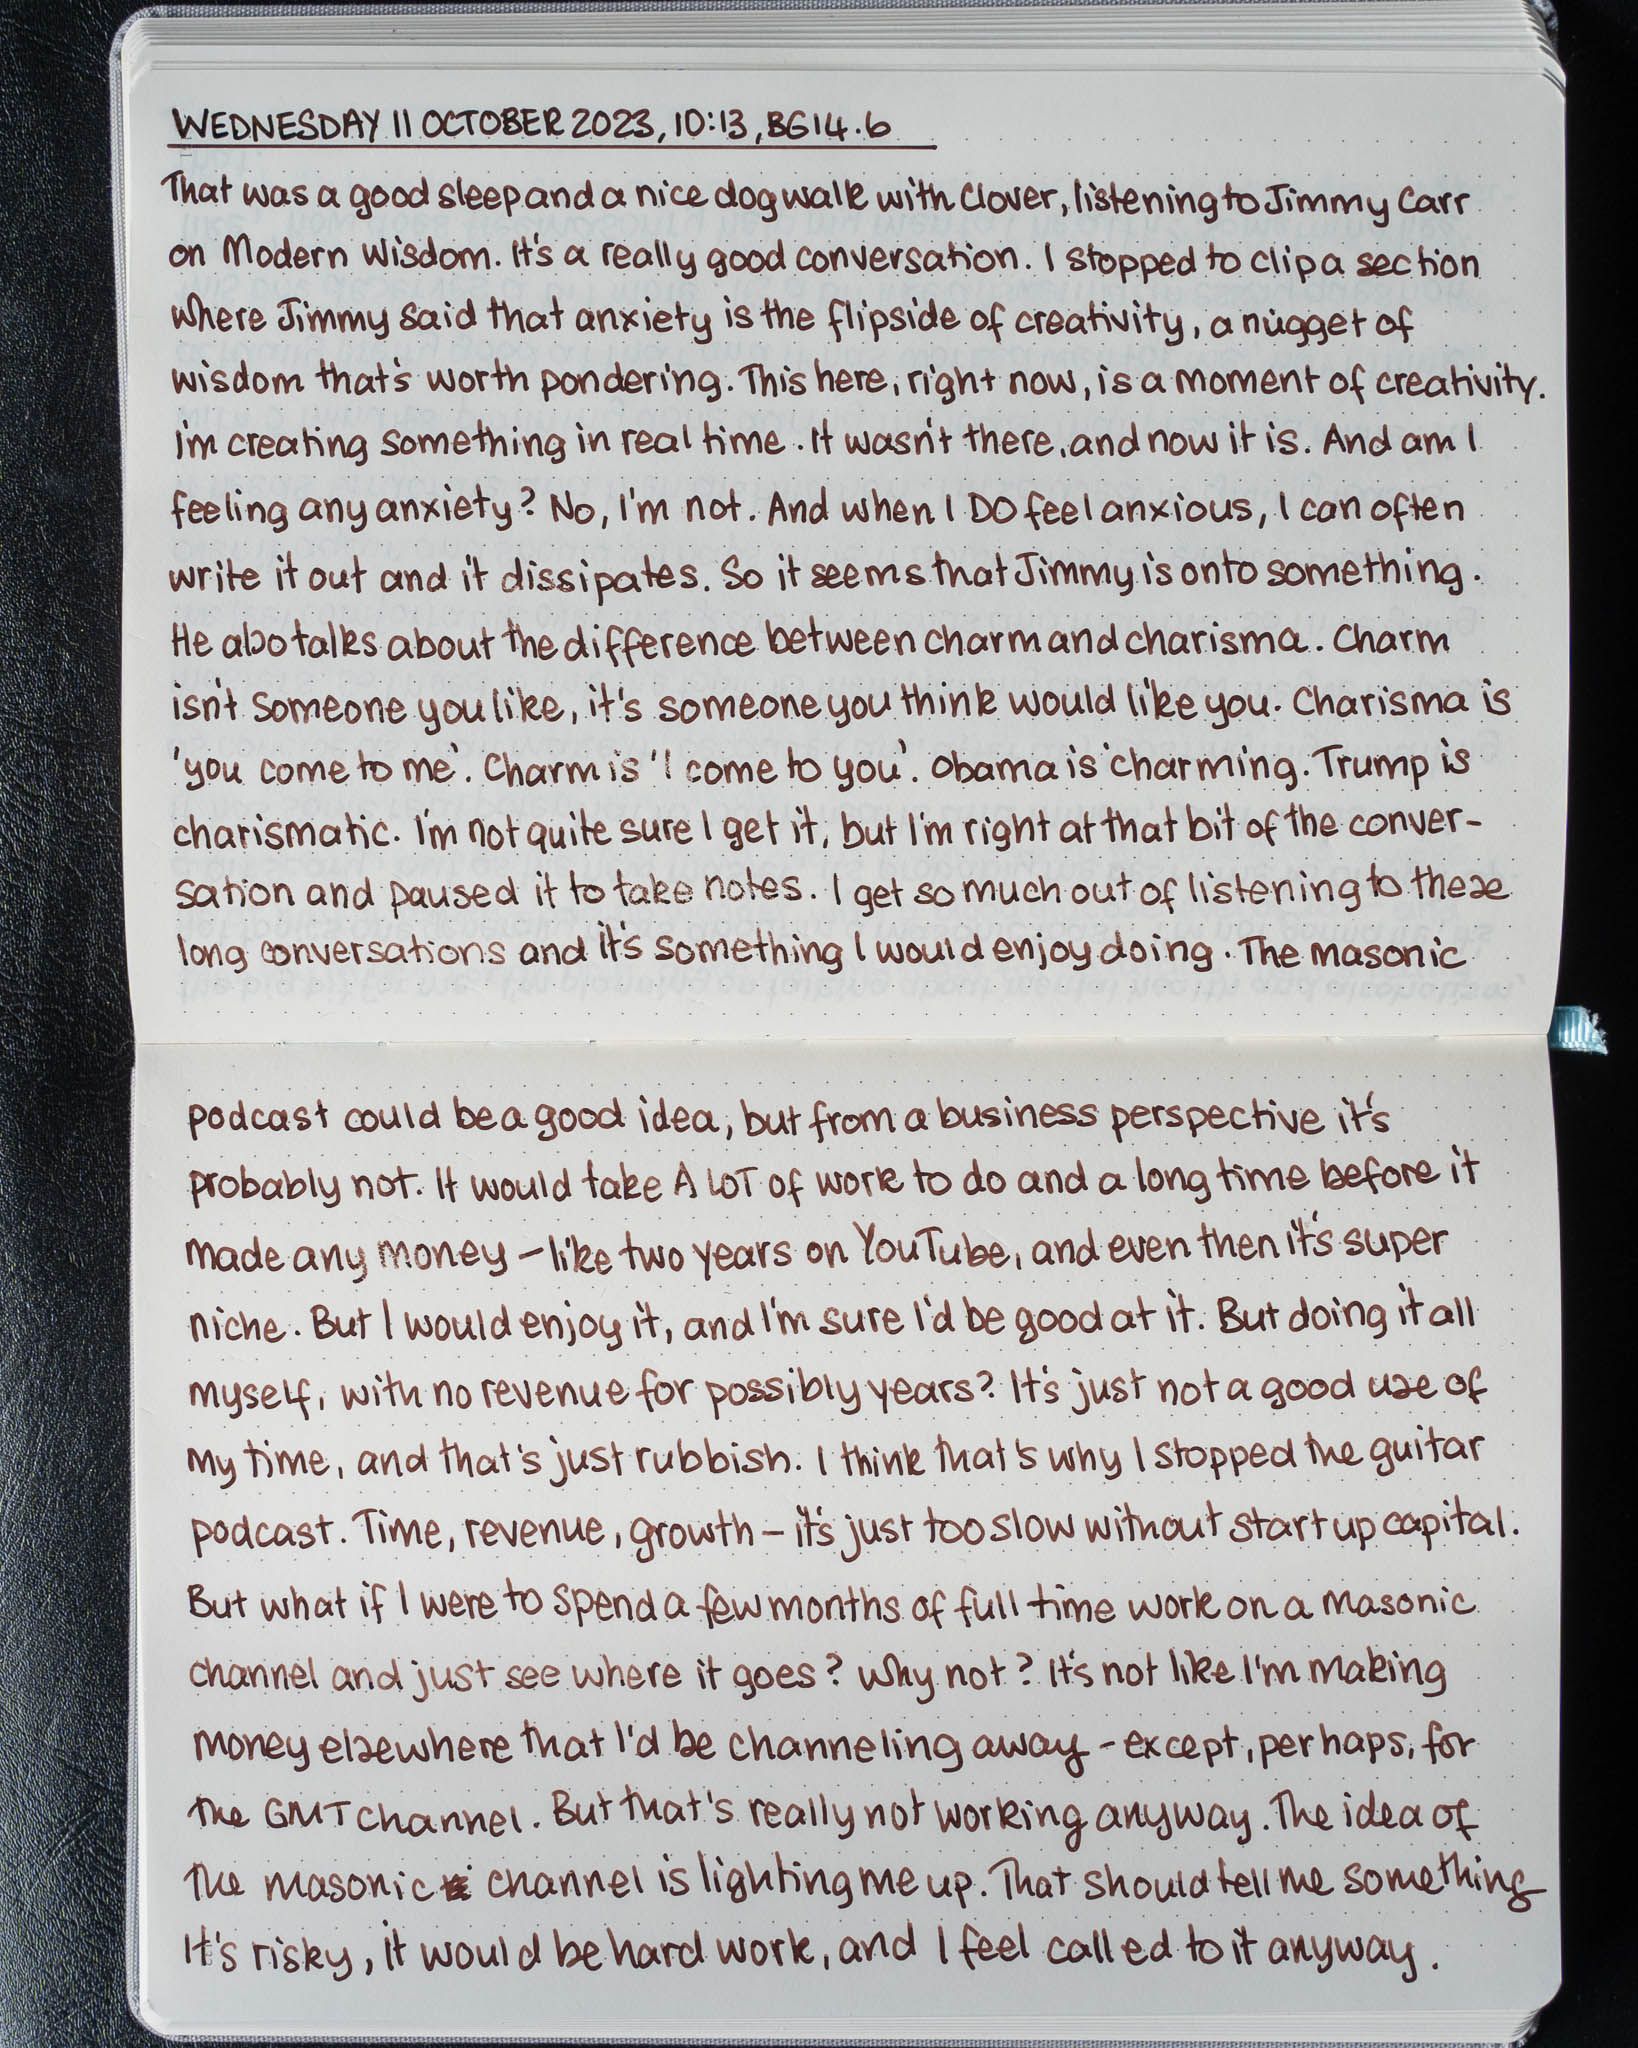 WEDNESDAY 11 OCTOBER 2023, 10:13, BG14.6
That was a good sleep and a nice dog walk with Clover, listening to Jimmy Carr
on Modern Wisdom. It's a really good conversation. I stopped to clip a section
where Jimmy said that anxiety is the flipside of creativity, a nugget of
wisdom that's worth pondering. This here, right now, is a moment of creativity.
I'm creating something in real time. It wasn't there, and now it is. And am I
feeling any anxiety? No, I'm not. And when I DO feel anxious, I can often
write it out and it dissipates. So it seems that Jimmy is onto something.
He also talks about the difference between charm and charisma. Charm
isn't someone you like, it's someone you think would like you. Charisma is
'you come to me'. Charm is 'I come to you'. Obama is charming. Trump is
charismatic. I'm not quite sure I get it, but I'm right at that bit of the conver-
sation and paused it to take notes. I get so much out of listening to these
long conversations and it's something I would enjoy doing. The masonic
podcast could be a good idea, but from a business perspective it's
probably not. It would take A LOT of work to do and a long time before it
made any money – like two years on YouTube, and even then it's super
niche. But I would enjoy it, and I'm sure I'd be good at it. But doing it all
myself, with no revenue for possibly years? It's just not a good use of
my time, and that's just rubbish. I think that's why I stopped the guitar
podcast. Time, revenue, growth – it's just too slow without start up capital.
But what if I were to spend a few months of full time work on a masonic
channel and just see where it goes? Why not? It's not like I'm making
money elsewhere that I'd be channeling away – except, perhaps, for
the GMT channel. But that's really not working anyway. The idea of
the masonic channel is lighting me up. That should tell me something
It's risky, it would be hard work, and I feel called to it anyway.